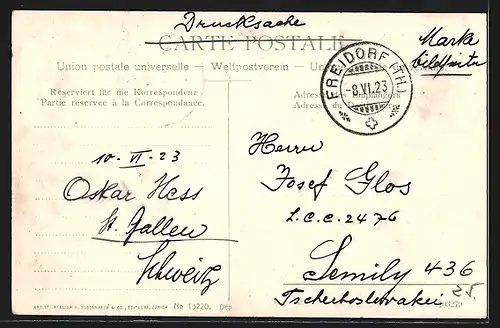 Drucksache
CARTE POSTALE
Marke
Bildseite
Union postale universelle – Weltpostverein –
FREIDORF (TH.)
-8.VI.23
Reserviert für die Korrespondenz
Partie réservée à la Correspondance.
Adresse du
10-VI-23
Oskar Hess
St. Gallen
Schweiz
Herrn
Josef Glos
L.C.C. 2476
Semily 436
Tschechoslowakei
25.
No 13220. Dep